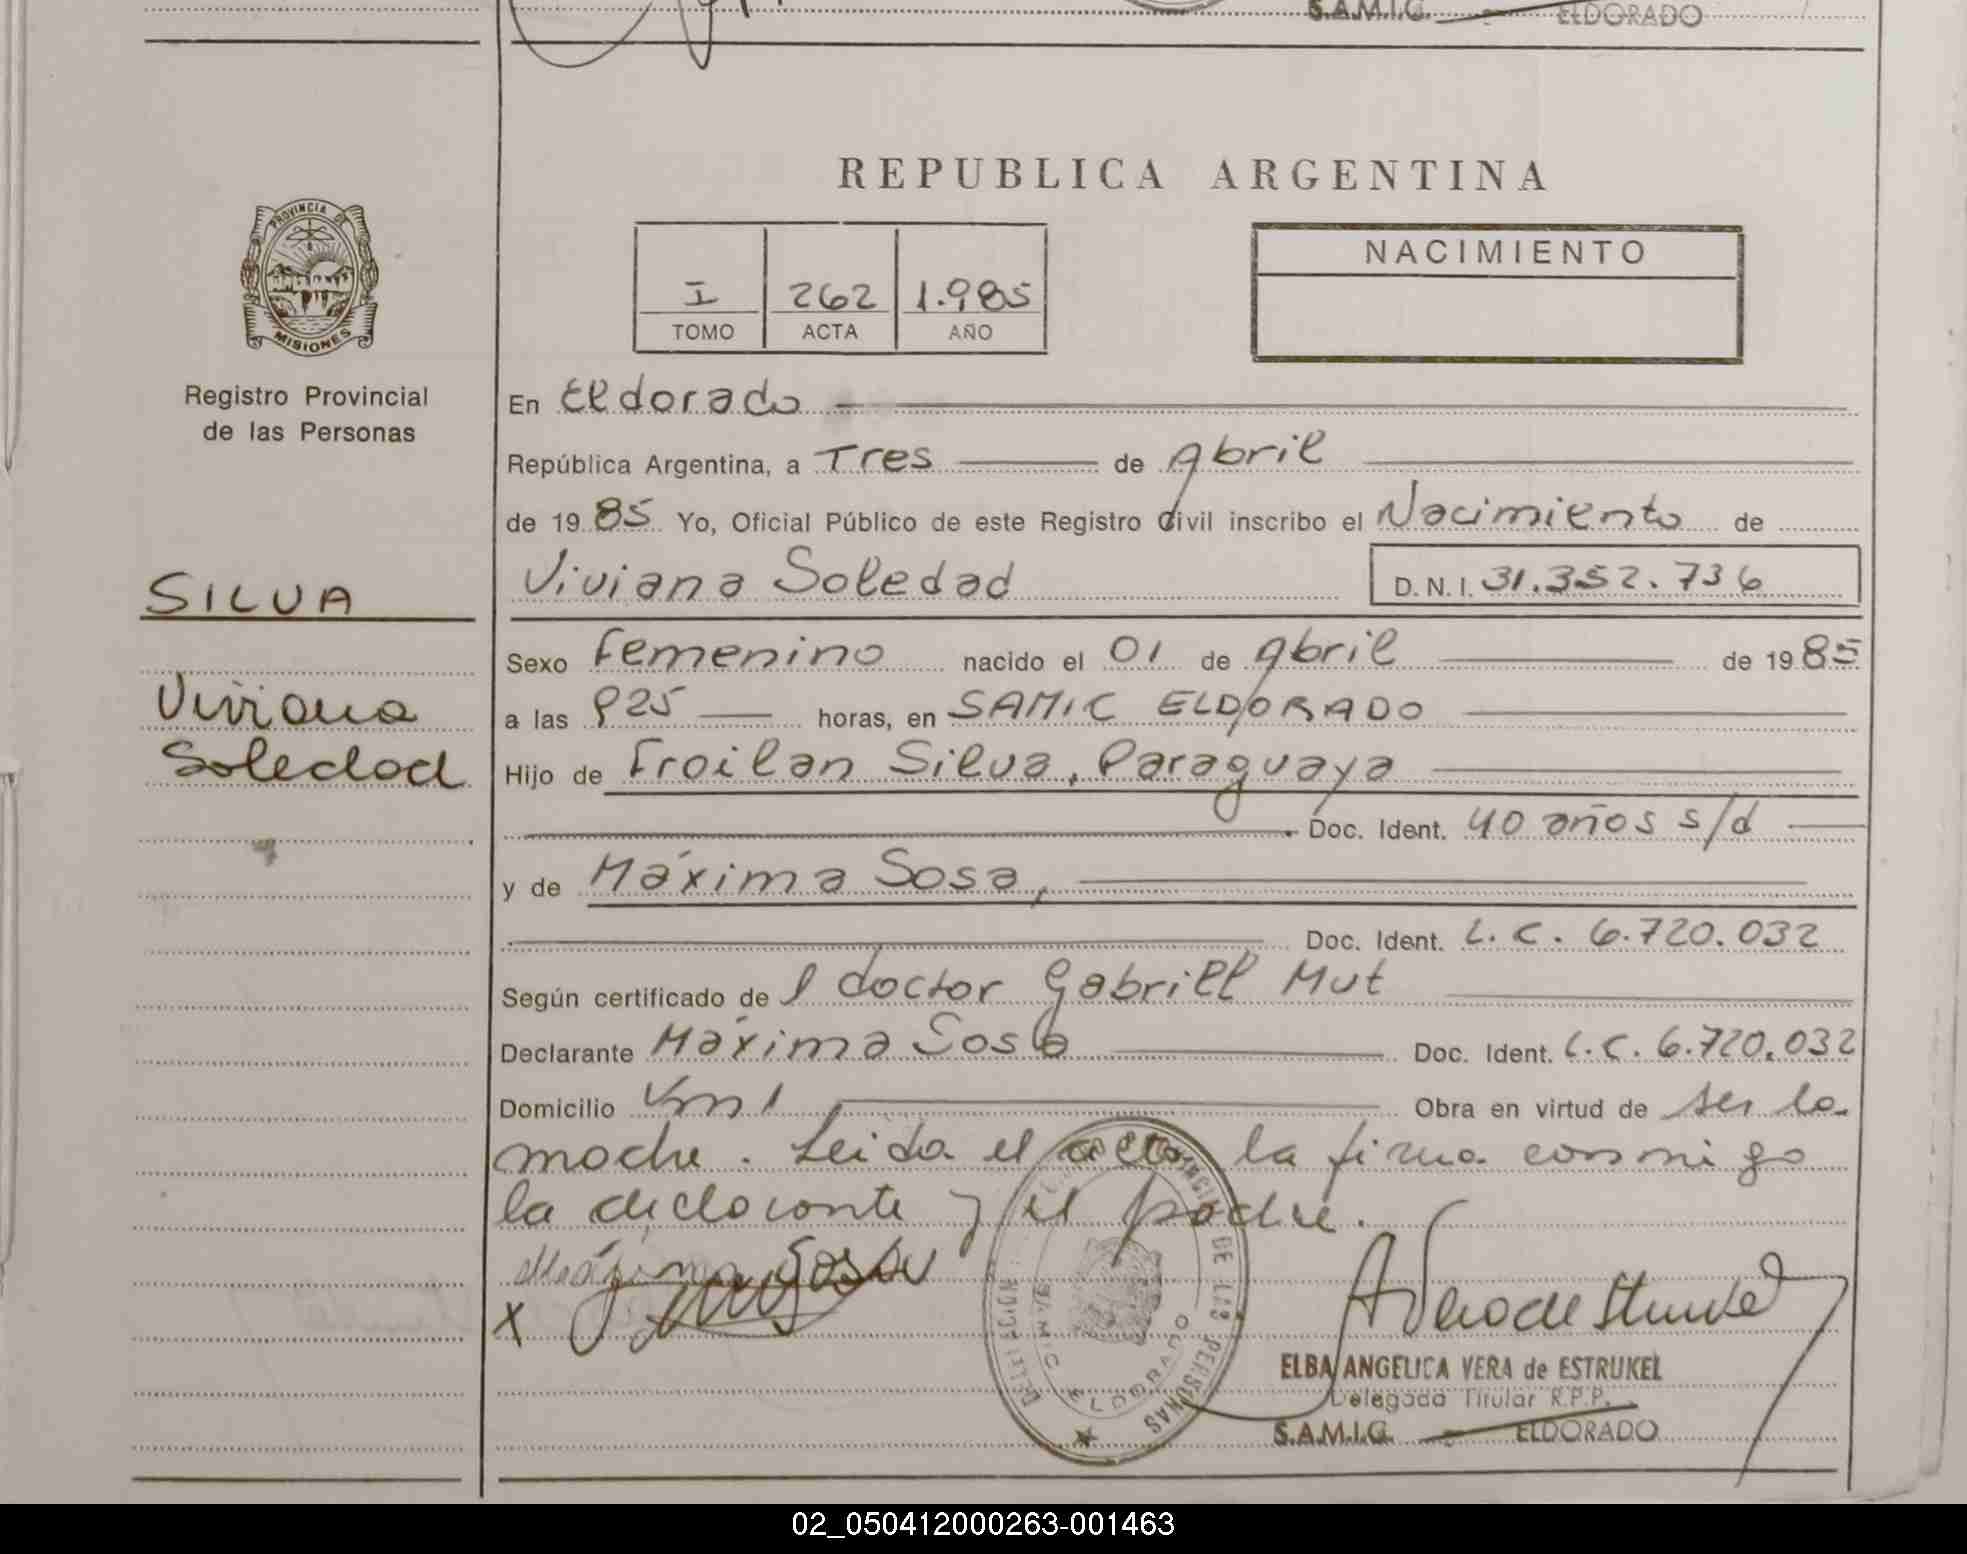 S.A.M.I.C. ELDORADO
REPUBLICA ARGENTINA
PROVINCIA DE
MISIONES
Registro Provincial
de las Personas
I 262 1.985
TOMO ACTA AÑO
NACIMIENTO
En Eldorado
República Argentina, a Tres de Abril
de 1985 Yo, Oficial Público de este Registro Civil inscribo el Nacimiento de
Viviana Soledad D.N.I. 31.352.736
SILVA
Viviana
Soledad
Sexo Femenino nacido el 01 de Abril de 1985
a las 925 horas, en SAMIC ELDORADO
Hijo de Froilan Silva, Paraguaya
Doc. Ident. 40 años s/d
y de Máxima Sosa,
Doc. Ident. L.C. 6.720.032
Según certificado de l doctor Gabriel Mut
Declarante Máxima Sosa Doc. Ident. L.C. 6.720.032
Domicilio Km 1 Obra en virtud de ser la
madre. Leida el acta, la firma conmigo
la declarante y el padre.
Máxima Sosa
X
DELEGACION PROVINCIAL DE LAS PERSONAS
SAMIC ELDORADO
ELBA ANGELICA VERA de ESTRUKEL
Delegada Titular R.P.P.
S.A.M.I.C. ELDORADO
02_050412000263-001463